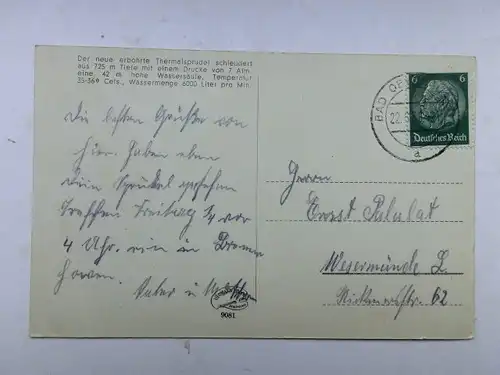 Der neue erbohrte Thermalsprudel schleudert
aus 725 m Tiefe mit einem Drucke von 7 Atm.
eine 42 m hohe Wassersäule, Temperatur
35-36° Cels., Wassermenge 6000 Liter pro Min.
Die besten Grüße von
hier. Haben eben
den Sprudel gesehen
treffen Freitag ¼ vor
4 Uhr. ein in Bremer
haven.
Vater u. Mutter
9081
6 6
Deutsches Reich
BAD OEY
22.6
a
Herrn
Ernst
Wesermünde L.
62